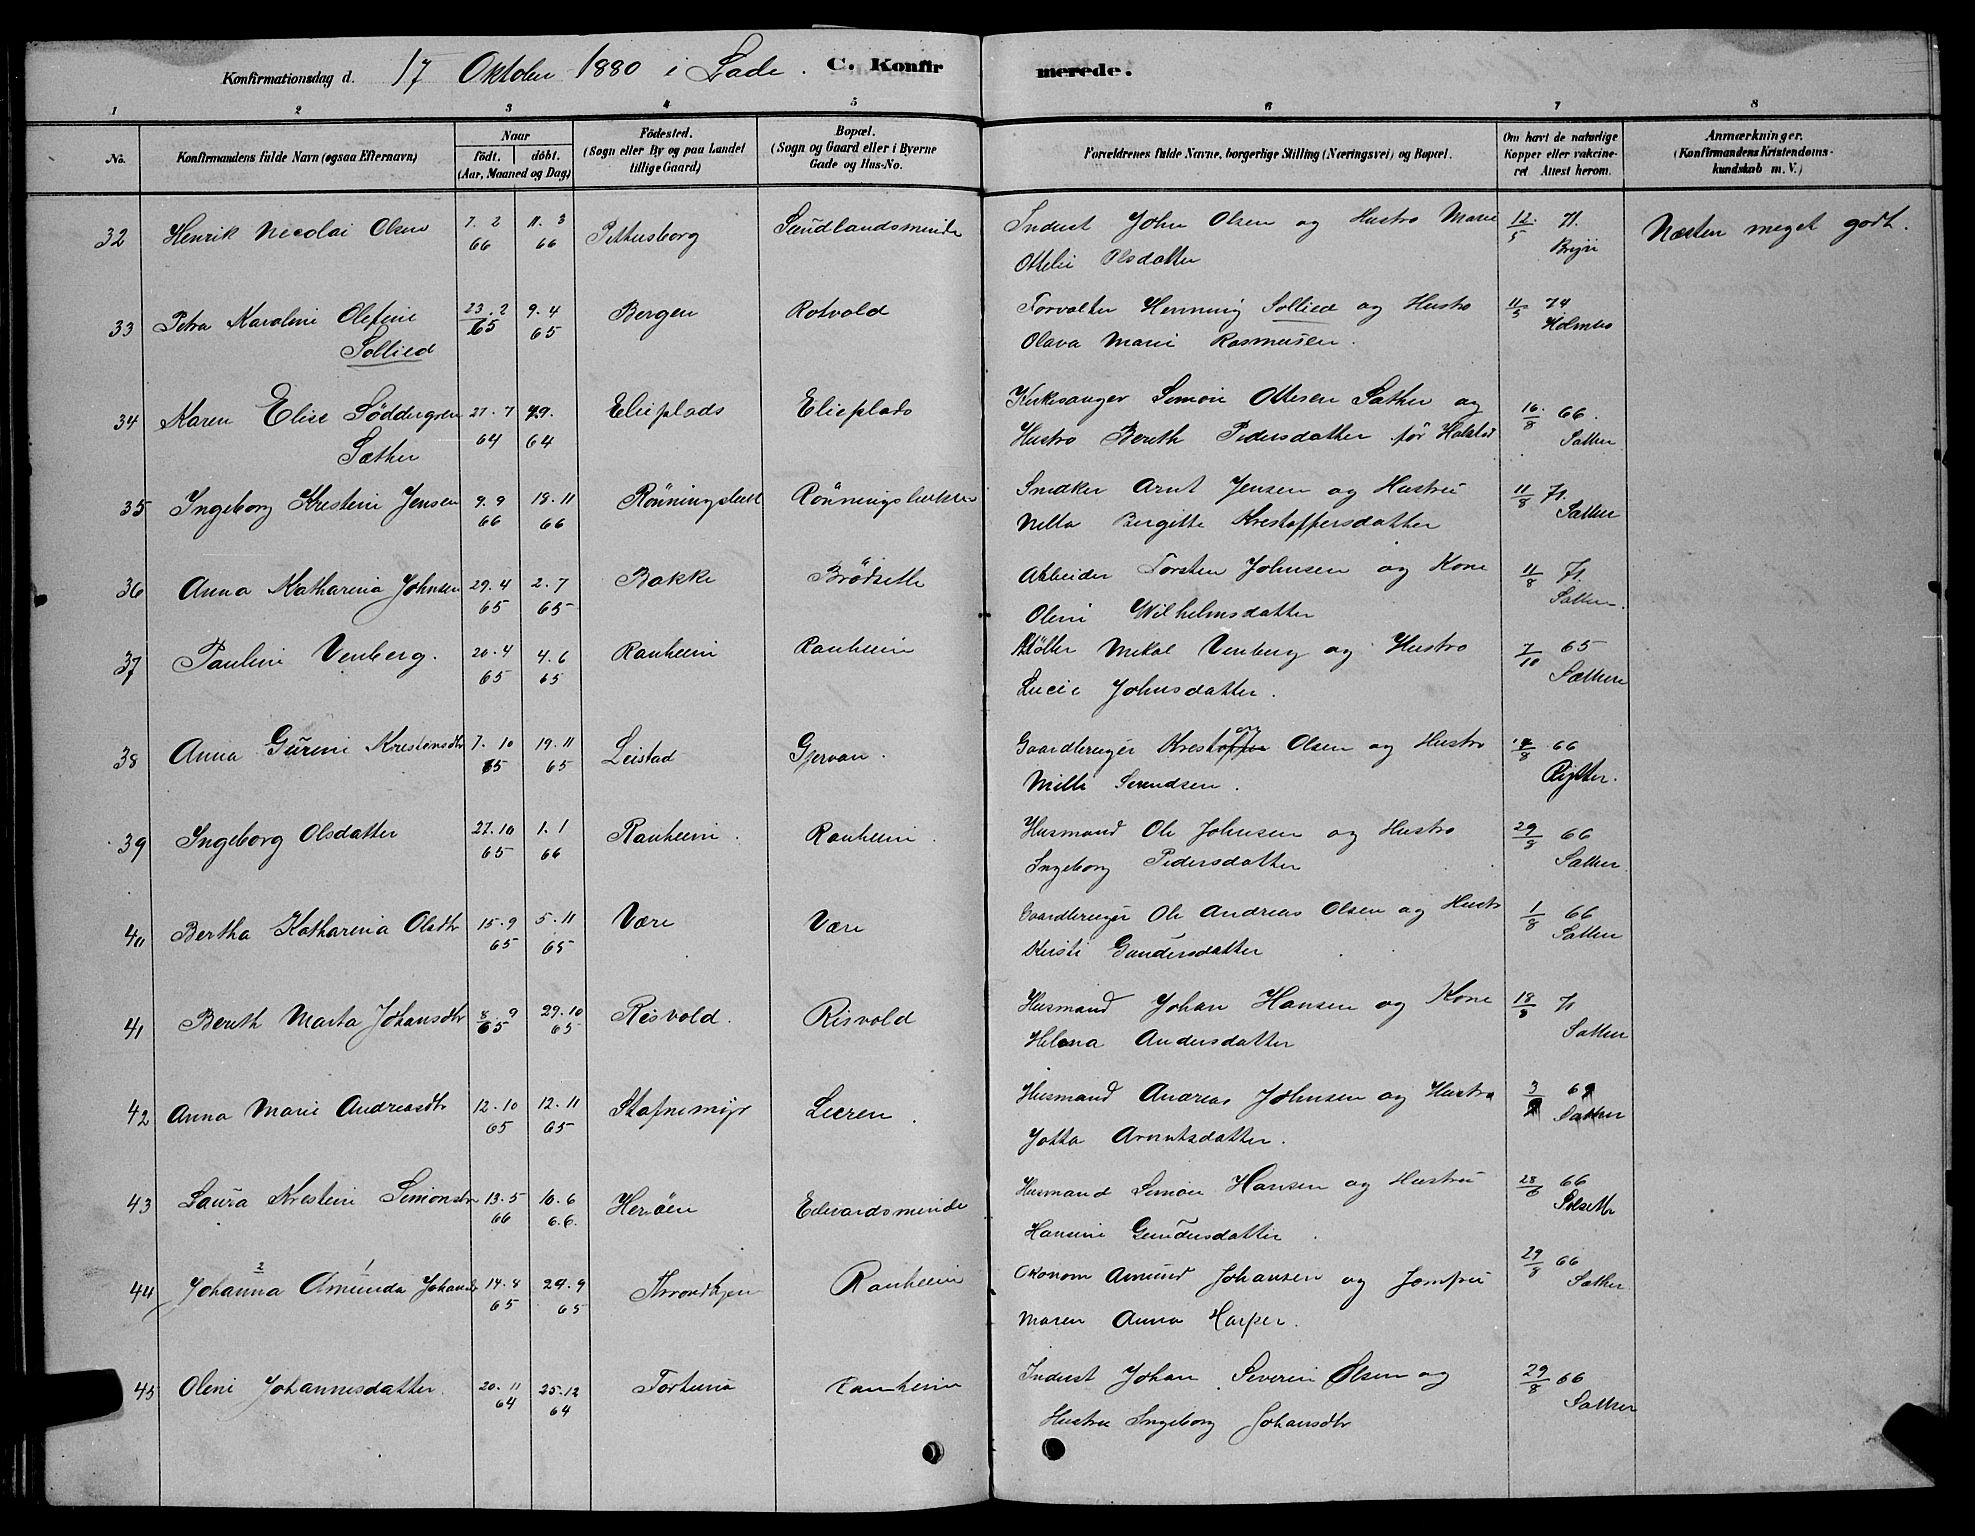 Konfirmationsdag d. 17 Oktober 1880 i Lade. C. Konfirmerede.
1 2 3 4 5 6 7 8
No. Konfirmandens fulde Navn (ogsaa Efternavn) Naar födt. döbt. (Aar, Maaned og Dag) Födested. (Sogn eller By og paa Landet tillige Gaard) Bopæl. (Sogn og Gaard eller i Byerne Gade og Hus-No. Forældrenes fulde Navne, borgerlige Stilling (Næringsvei) og Bopæl. Om havt de naturlige Kopper eller vakcineret Attest herom. Anmærkninger. (Konfirmandens Kristendomskundskab m. V.)
32 Henrik Nicolai Olsen 7. 2 66 11. 3 66 Sandlandsminde Inderst John Olsen og Hustro Marie 12/5 71. Næsten meget godt.
Ottelie Olsdatter
33 Petra Karoline Olefine 23. 2 65 9. 4 65 Bergen Rotvold Forvalter Henning Sollied og Hustro 11/5 74 Holmbo
Sollied Olava Marie Rasmussen.
34 Karen Elise Söddergren 21. 7 64 64 Elieplads Elieplads Kirkesanger Simon Ottesen Sæther og 16/8 66. Sæther
Sæther Hustro Bereth Pedersdatter för Halstad
35 Ingeborg Kristine Jensen 9. 9 66 18. 11 66 Rönningsbakk Rönningsbakken Snedker Arnt Jensen og Hustru 11/8 71. Sæther
Netta Birgitte Krestoffersdatter
36 Anna Katharina Johnsen 29. 4 65 2. 7 65 Bakke Brödsette Arbeider Torsten Johnsen og Kone 11/8 71. Sæther.
Oline Wilhelmsdatter
37 Pauline Venberg. 20. 4 65 4. 6 65 Ranheim Ranheim Möller Mikal Venberg og Hustro 7/10 65 Sæther
Lucie Johnsdatter.
38 Anna Gurine Krestensdtr 7. 10 65 19. 11 65 Leistad Gjervan. Gaardbruger Olsen og Hustro 66
Mille Svendsen.
39 Ingeborg Olsdatter 27. 10 65 1. 1 66 Ranheim. Ranheim. Husmand Ole Johnsen og Hustro 29/8 66 Sæther
Ingeborg Pedersdatter
40 Bertha Katharina Olsdtr 15. 9 65 5. 11 65 Være Være Gaardbruger Ole Andreas Olsen og Hustr 1/8 66 Sæther
Kirsti Gundersdatter
41 Bereth Marta Johansdtr 8. 9 65 29. 10 65 Risvold. Risvold Husmand Johan Hansen og Kone 18/8 71 Sæther
Helena Andersdatter
42 Anna Marie Andreasdtr 12. 10 65 12. 11 65 Stafnemyr Leeren. Husmand Andreas Johnsen og Hustro Sæther
Jotta Arntsdatter.
43 Laura Kristine Simonsdtr 13. 5 66 10. 6 66. Heröen Edvardsminde Husmand Simon Hansen og Hustru 28/6 66
Hansine Gundersdatter.
44 Johanna Amunda Johansd 14. 8 65 24. 9 65 Throndhjem Ranheim Økonom Amund Johansen og Jomfru 29/8 66 Sæther
Maren Anna Harper.
45 Oline Johannesdatter. 20. 11 64 25. 12 64 Fortuna Ranheim Inderst Johan Severin Olsen og 29/8 66 Sæther
Hustru Ingeborg Johansdtr